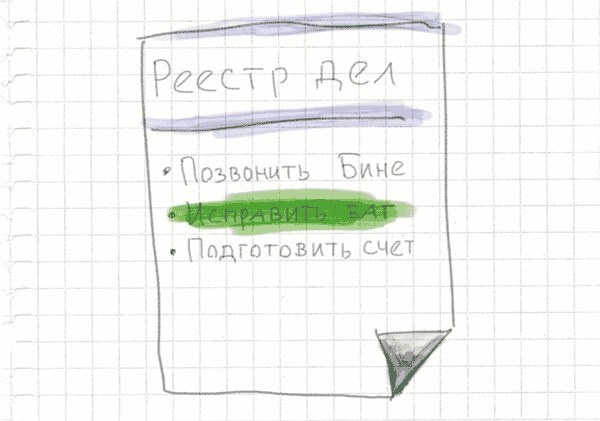 Реестр дел
• Позвонить Бине
• Исправить БАГ
• Подготовить счет